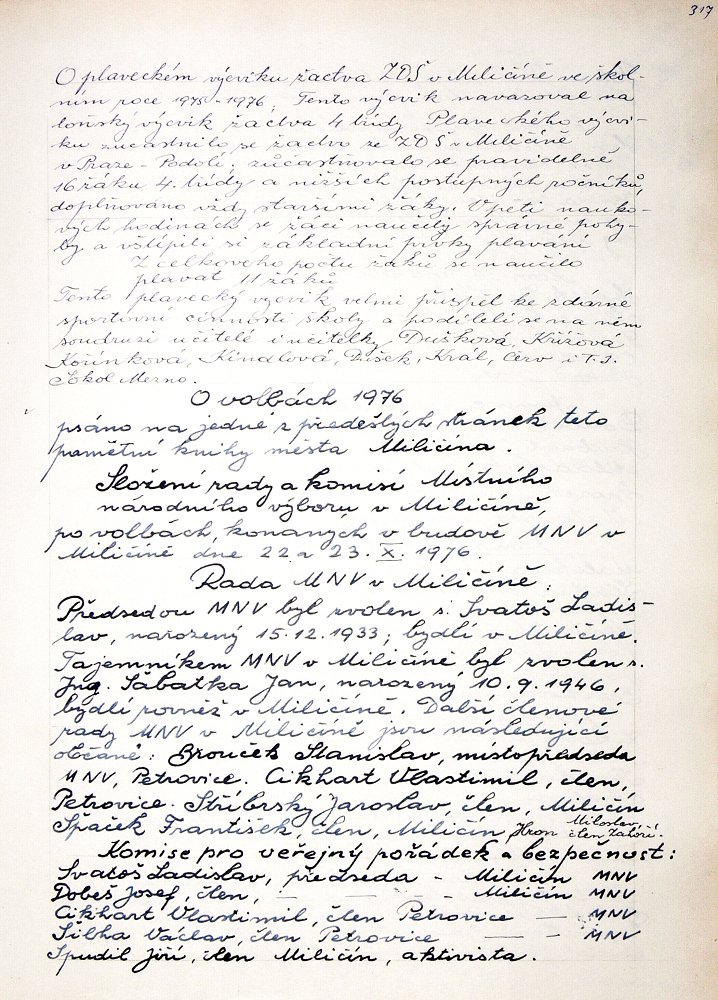 317
O plaveckém výcviku žactva ZDŠ v Miličíně ve škol-
ním roce 1975-1976. Tento výcvik navazoval na
loňský výcvik žactva 4 třídy Plaveckého výcvi-
ku zúčastnilo se žactvo ze ZDŠ v Miličíně
v Praze - Podolí. zúčastňovalo se pravidelně
16 žáku 4. třídy a nižších postupných ročníků,
doplňováno vždy staršími žáky. V pěti nauko-
vých hodinách se žáci naučily správné pohy-
by a vštípili si základní prvky plavání
Z celkového počtu žáků se naučilo
plavat 11 žáků
Tento plavecký výcvik velmi přispěl ke zdárné
sportovní činnosti školy a podíleli se na něm
soudruzi učitelé i učitelky Dušková, Křížová
Kořínková, Kindlová, Dušek, Král, Červ i T.J.
Sokol Mezno.
O volbách 1976
psáno na jedné z předešlých stránek této
pamětní knihy města Miličína.
Složení rady a komisí Místního
národního výboru v Miličíně,
po volbách, konaných v budově MNV v
Miličíně dne 22 a 23. X. 1976.
Rada MNV v Miličíně.
Předsedou MNV byl zvolen s. Svatoš Ladis-
lav, narozený 15.12.1933; bydlí v Miličíně.
Tajemníkem MNV v Miličíně byl zvolen s.
Jng. Sábatka Jan, narozený 10.9.1946,
bydlí rovněž v Miličíně. Další členové
rady MNV v Miličíně jsou následující
občané: Brouček Stanislav, místopředseda
MNV, Petrovice. Cikhart Vlastimil, člen,
Petrovice. Stříbrský Jaroslav, člen, Miličín
Špaček František, člen, Miličín, Hron Miloslav, člen Záhoří.
Komise pro veřejný pořádek a bezpečnost:
Svatoš Ladislav, předseda - Miličín MNV
Dobeš Josef, člen, - - - - Miličín MNV
Cikhart Vlastimil, člen Petrovice — MNV
Šibha Václav, člen Petrovice — - MNV
Spudil Jiří, člen Miličín, aktivista.